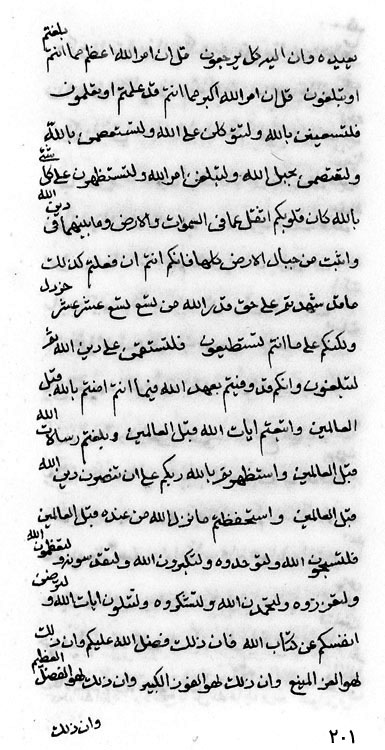 يعيده وان اليه كل يرجعون قل ان امر الله اعظم مما انتم بلغتم
او تبلغون قل ان امر الله اكبر مما انتم قد علمتم او تعلمون
فلتستعينن بالله ولتتوكلن على الله ولتستعصمن بالله
ولتعتصمن بحبل الله ولتبلغن امر الله ولتستظهرون على كل شئ
بالله كان قلوبكم اثقل عما فى السموات والارض وما بينهما فى دين الله
واثبت من جبال الارض كلها فانكم انتم ان فعلتم كذلك
ما قد شهدتم على حق قدر الله من تسع تسع عشر عشر خردل
ولكنكم على ما انتم تستطيعون فلتستقمن على دين الله
لتبلغنون وانكم قد وفيتم بعهد الله فيما انتم امنتم بالله قبل
العالمين واتبعتم ايات الله قبل العالمين وبلغتم رسالات الله
قبل العالمين واستظهرتم بالله ربكم على ان تنصرون دين الله
قبل العالمين واستحفظتم ما نزل الله من عنده قبل العالمين
فلتسبحون الله ولتوحدوه ولتكبرون الله ولتقدسونه ولتعظمون الله
ولتعززوه ولتحمدن الله ولتشكروه ولتتلون ايات الله و
انفسكم عن كتاب الله فان ذلك فضل الله عليكم وان ذلك
لهو العز المنيع وان ذلك لهو الفوز الكبير وان ذلك لهو الفضل العظيم
وان ذلك
٢٠١